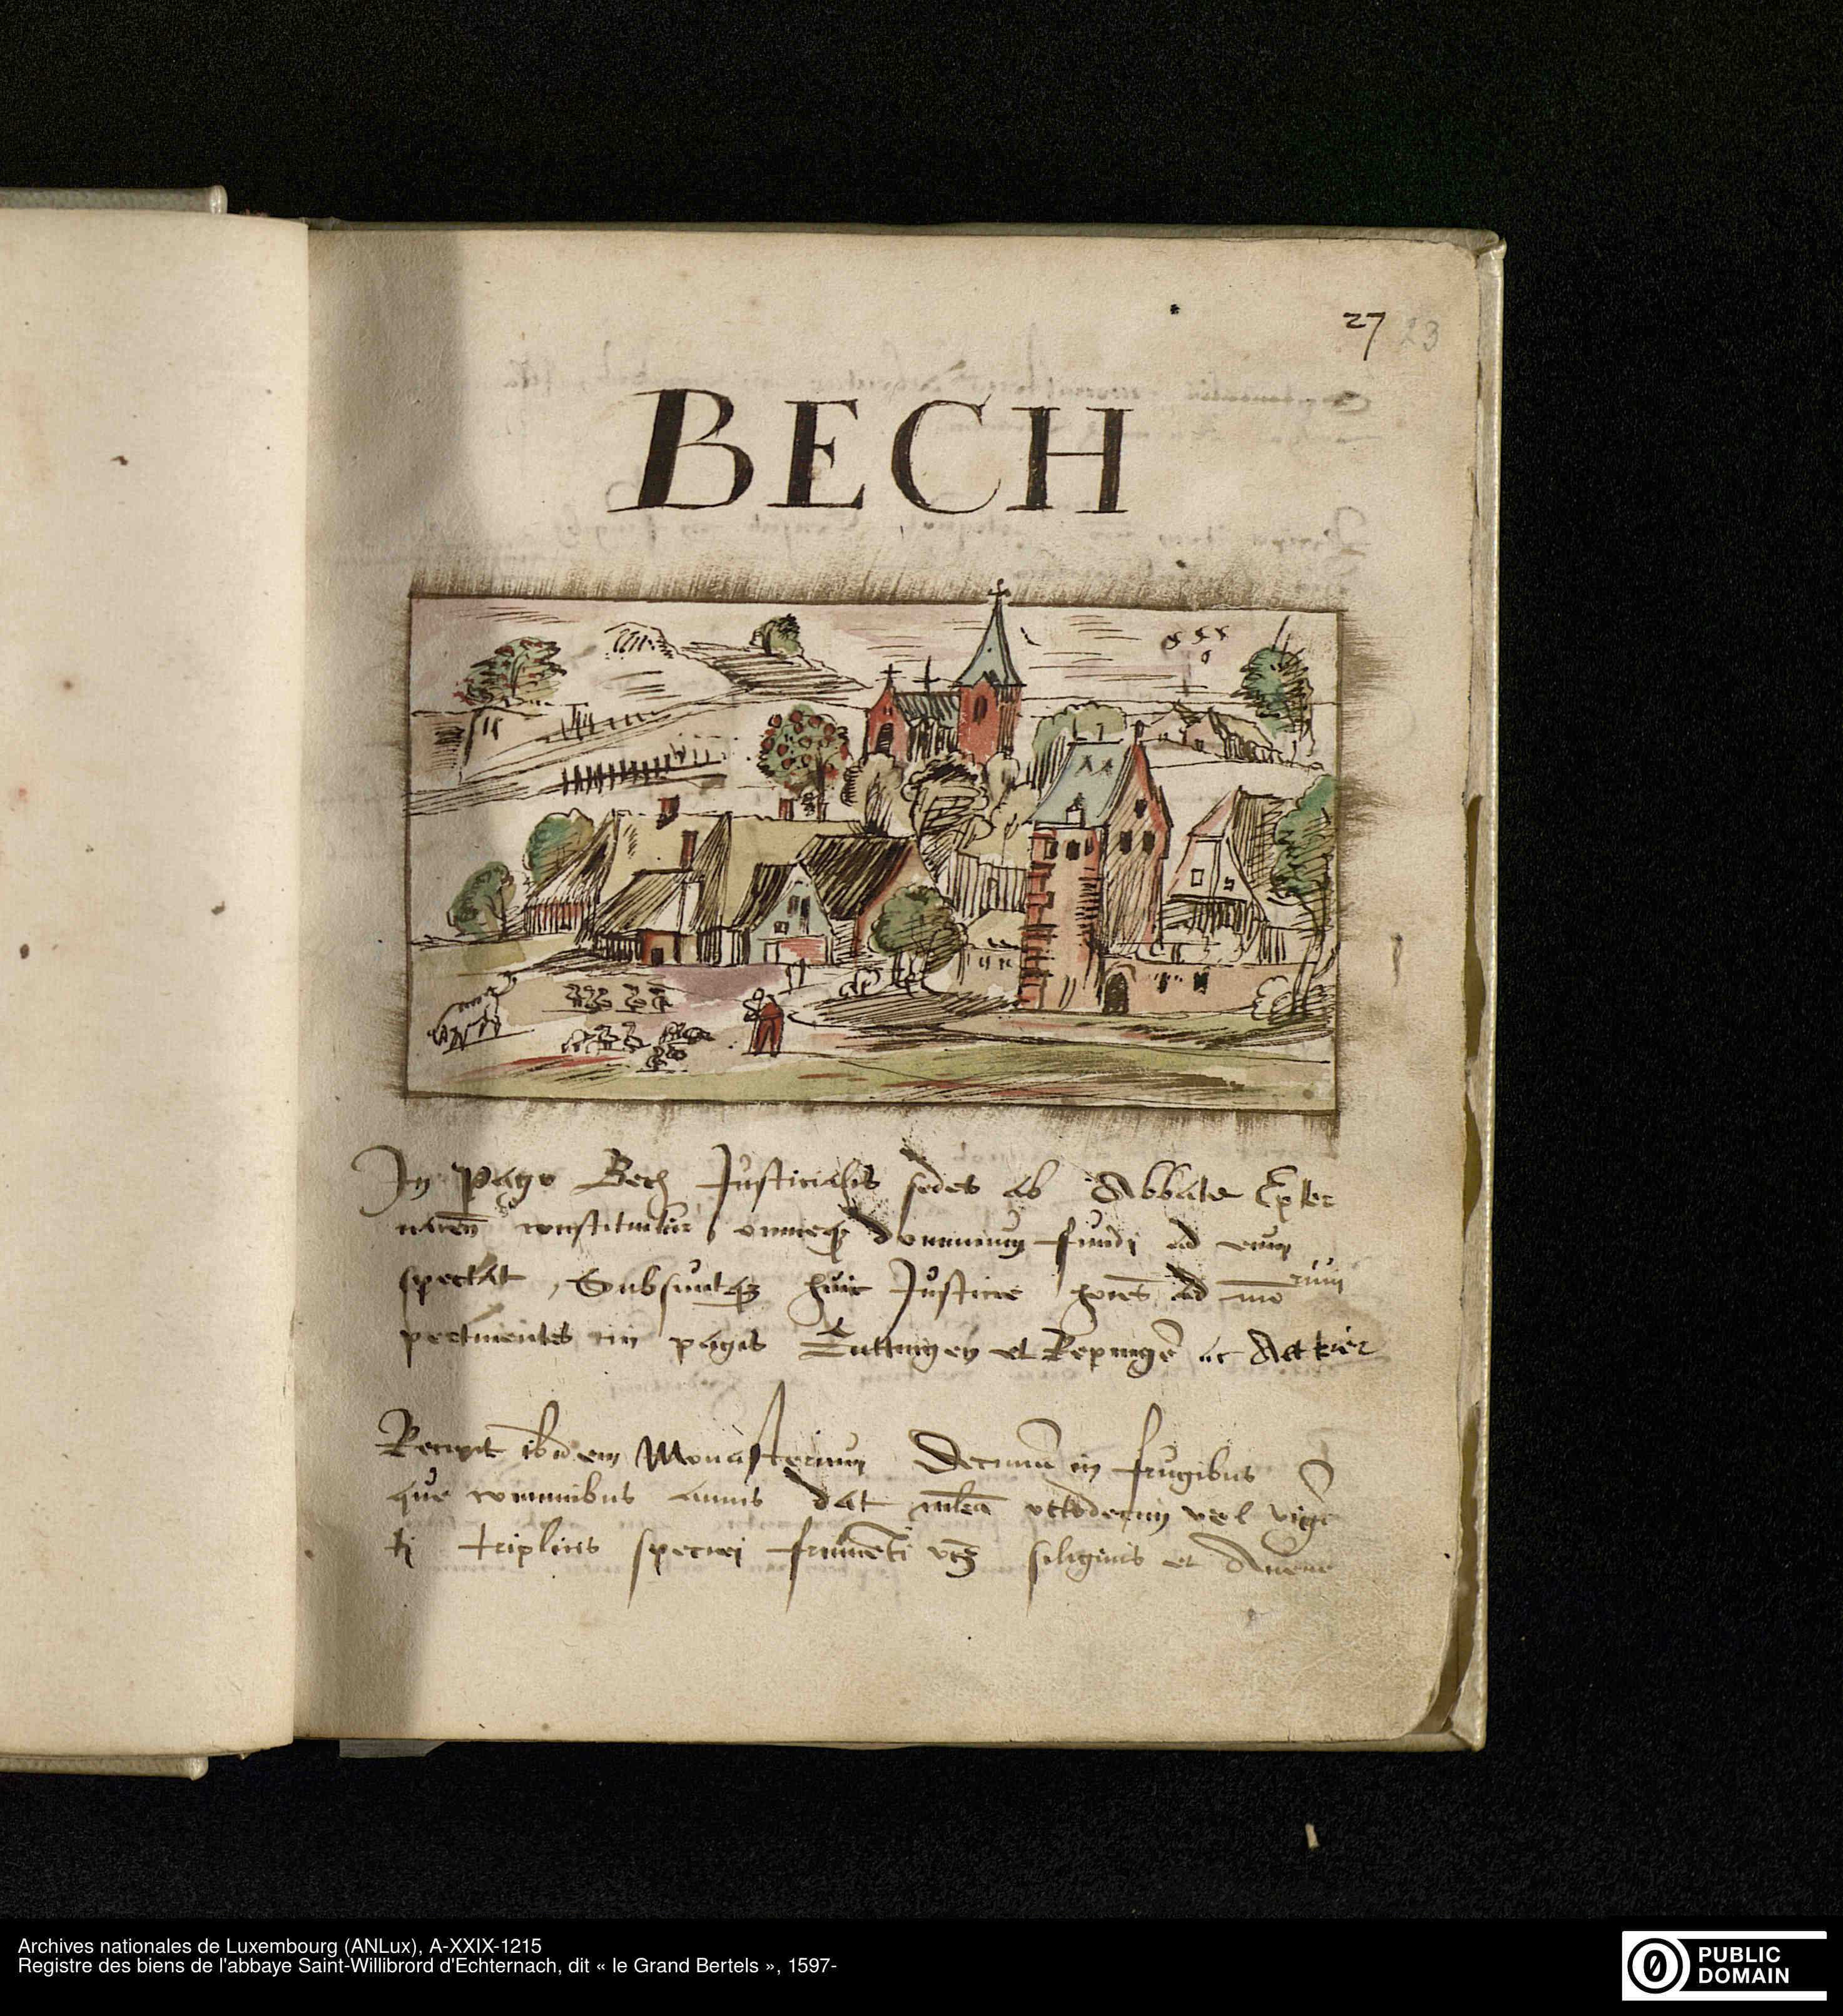 27 23
BECH
In pago Bech Justicialis sedes ab Abbate Epter
nacen̄ constituitur, omneqꝫ dominium fundi ad eum
spectat, Subsuntqꝫ huic Justicie hoīes ad mo͞rium
pertinentes in pagis Zittingen et Repingē ac Altrier
Recipit ibidem Monasterium Decimā in frugibus
que communibus annis dat octodecim vel vigī
ti triplicis speciei frumēti vcꝫ siliginis et Auene
Archives nationales de Luxembourg (ANLux), A-XXIX-1215
Registre des biens de l'abbaye Saint-Willibrord d'Echternach, dit « le Grand Bertels », 1597-
PUBLIC
DOMAIN